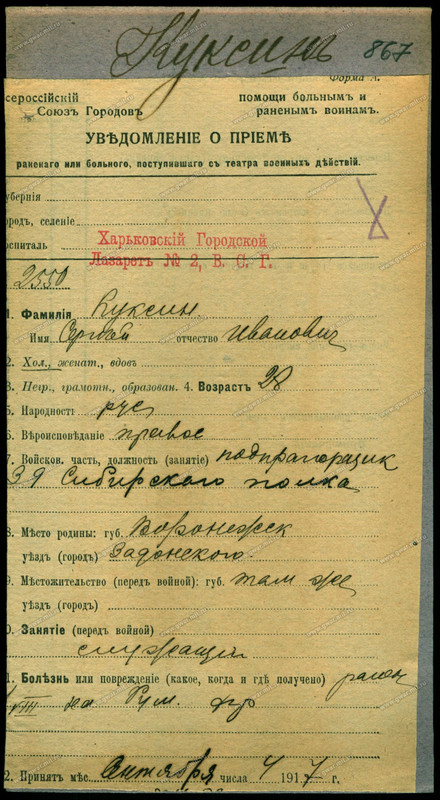 Куксинъ 867
Форма А.
сероссійскій помощи больнымъ и
Союзъ Городовъ раненымъ воинамъ.
УВѢДОМЛЕНІЕ О ПРІЕМѢ
раненаго или больного, поступившаго съ театра военныхъ дѣйствій.
убернія
ородъ, селеніе
оспиталь Харьковскій Городской
Лазаретъ № 2, В. С. Г.
2550
1. Фамилія Куксин
Имя Сергей отчество Иванович
2. Хол., женат., вдовъ
3. Негр., грамотн., образован. 4. Возрастъ 28
5. Народность рус
6. Вѣроисповѣданіе правос
7. Войсков. часть, должность (занятіе) подпрапорщик
Сибирского полка
8. Мѣсто родины: губ. Воронежск
уѣздъ (городъ) Задонского
9. Мѣстожительство (передъ войной): губ. там же
уѣздъ (городъ)
0. Занятіе (передъ войной)
служащий
1. Болѣзнь или поврежденіе (какое, когда и гдѣ получено) ранен
VIII на Рум. фр
2. Принятъ мѣс. Сентября числа 4 1917 г.